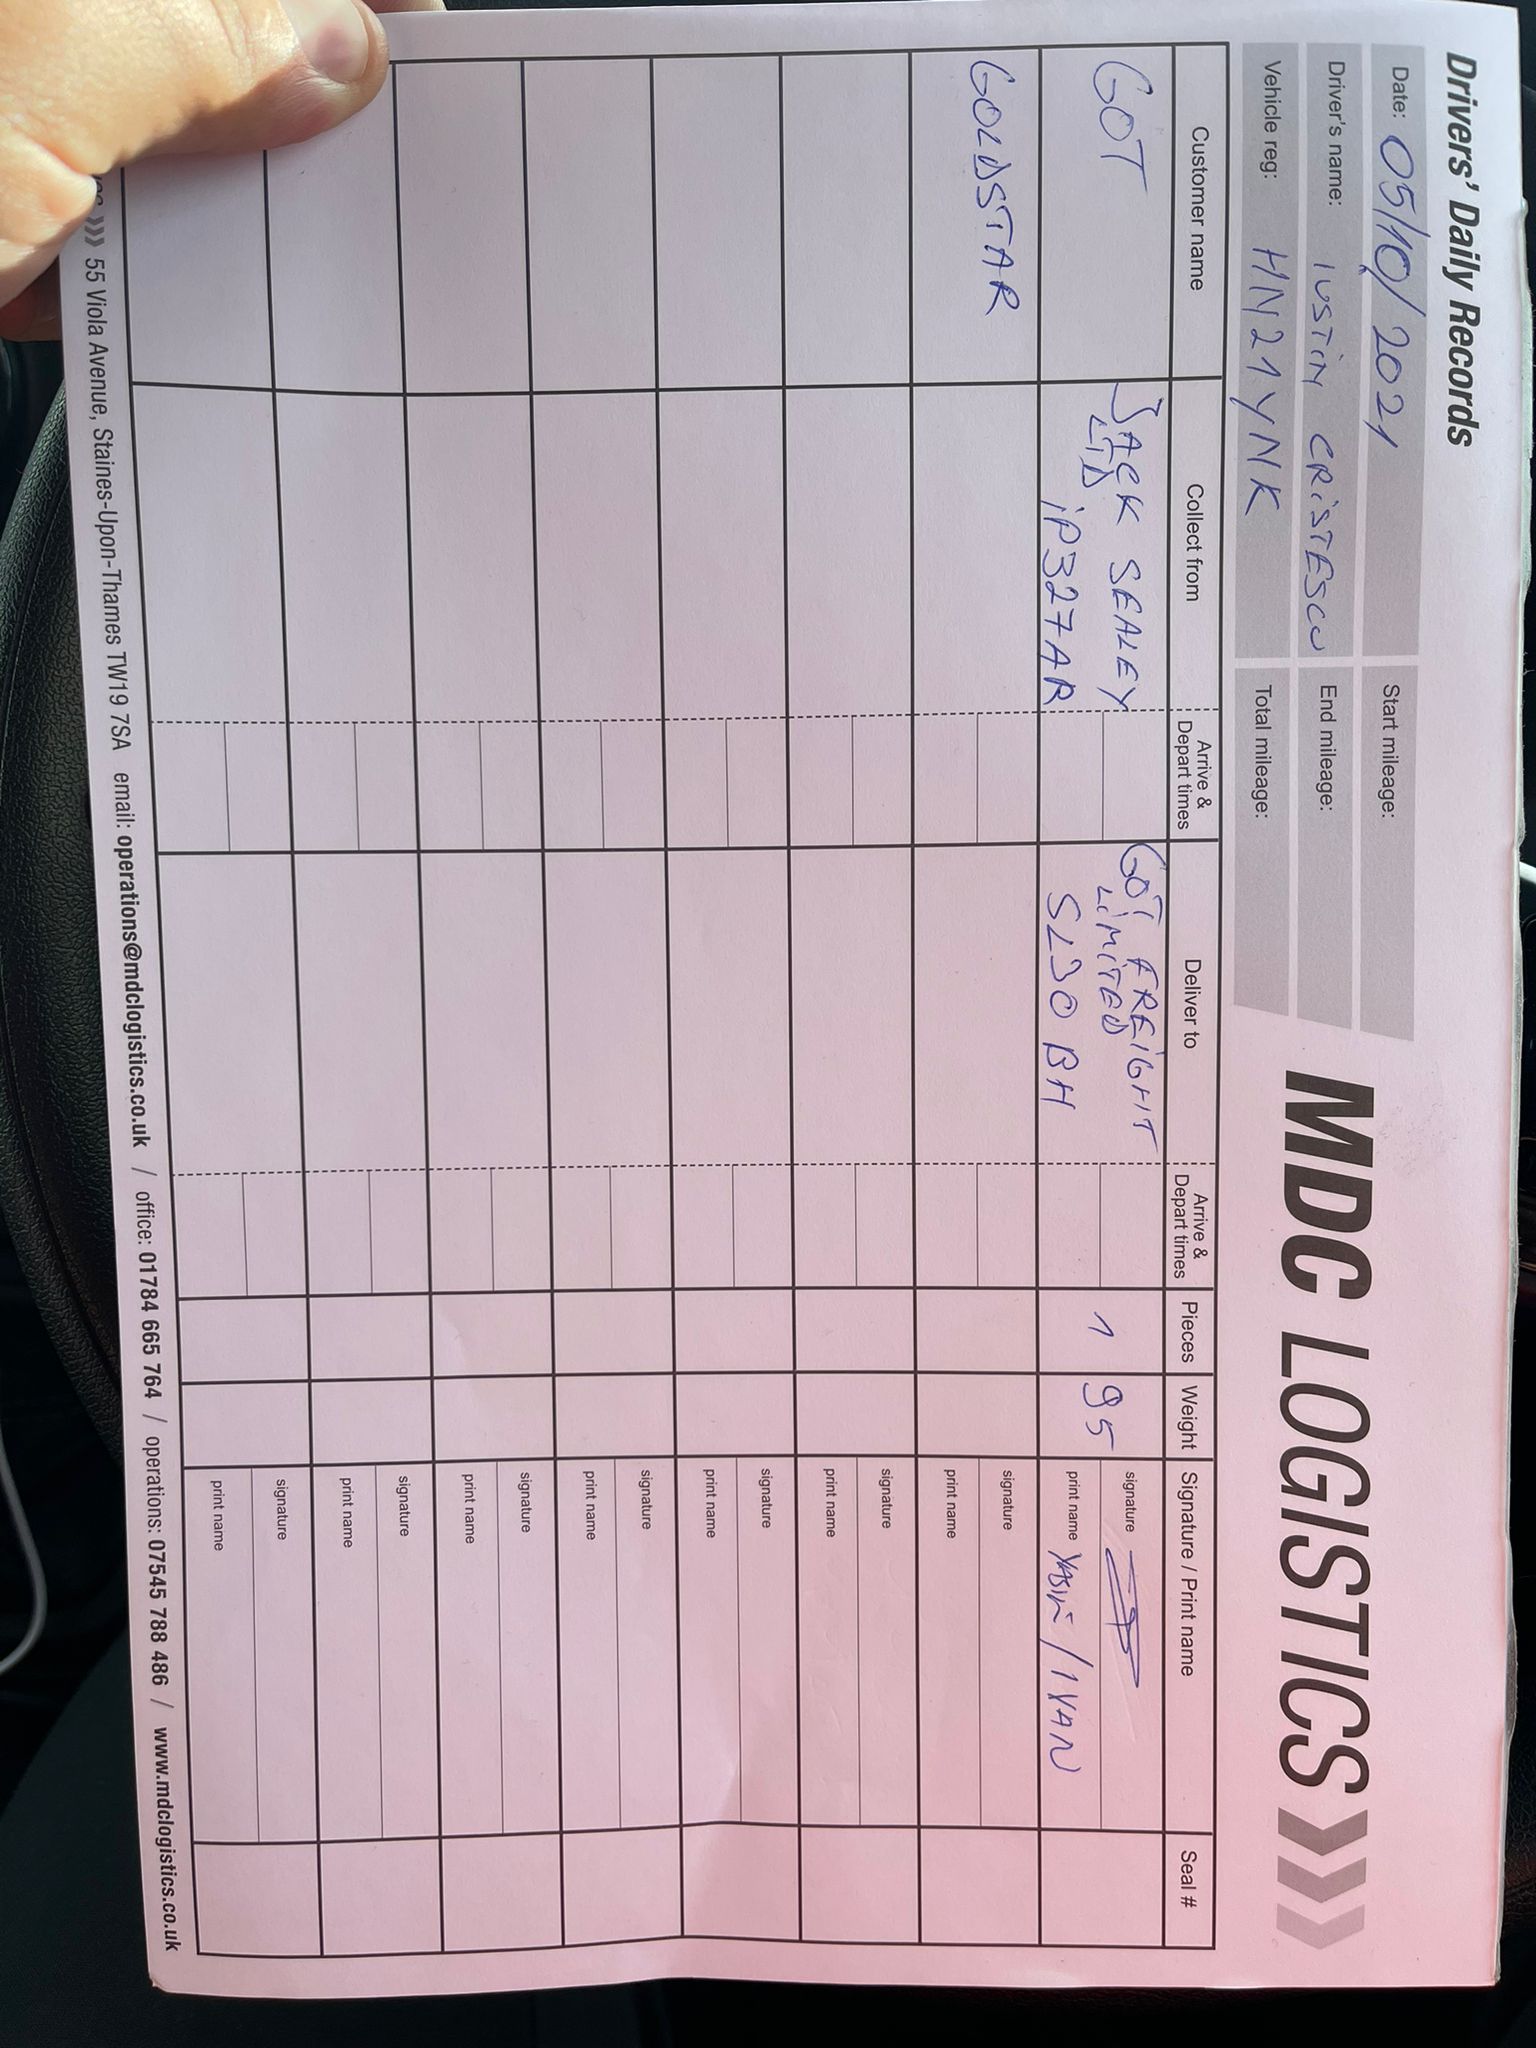 Drivers' Daily Records
MDC LOGISTICS
Date: 05/10/2021
Start mileage:
Driver's name: IUSTIN CRISTESCU
End mileage:
Vehicle reg: HN21YNK
Total mileage:
Customer name Collect from Arrive & Depart times Deliver to Arrive & Depart times Pieces Weight Signature / Print name Seal #
GOT JACK SEALEY GOT FREIGHT 1 95 signature
LTD LIMITED
IP327AR SL30BH print name /IVAN
GOLDSTAR signature
print name
signature
print name
signature
print name
signature
print name
signature
print name
signature
print name
signature
print name
55 Viola Avenue, Staines-Upon-Thames TW19 7SA email: operations@mdclogistics.co.uk / office: 01784 665 764 / operations: 07545 788 486 / www.mdclogistics.co.uk